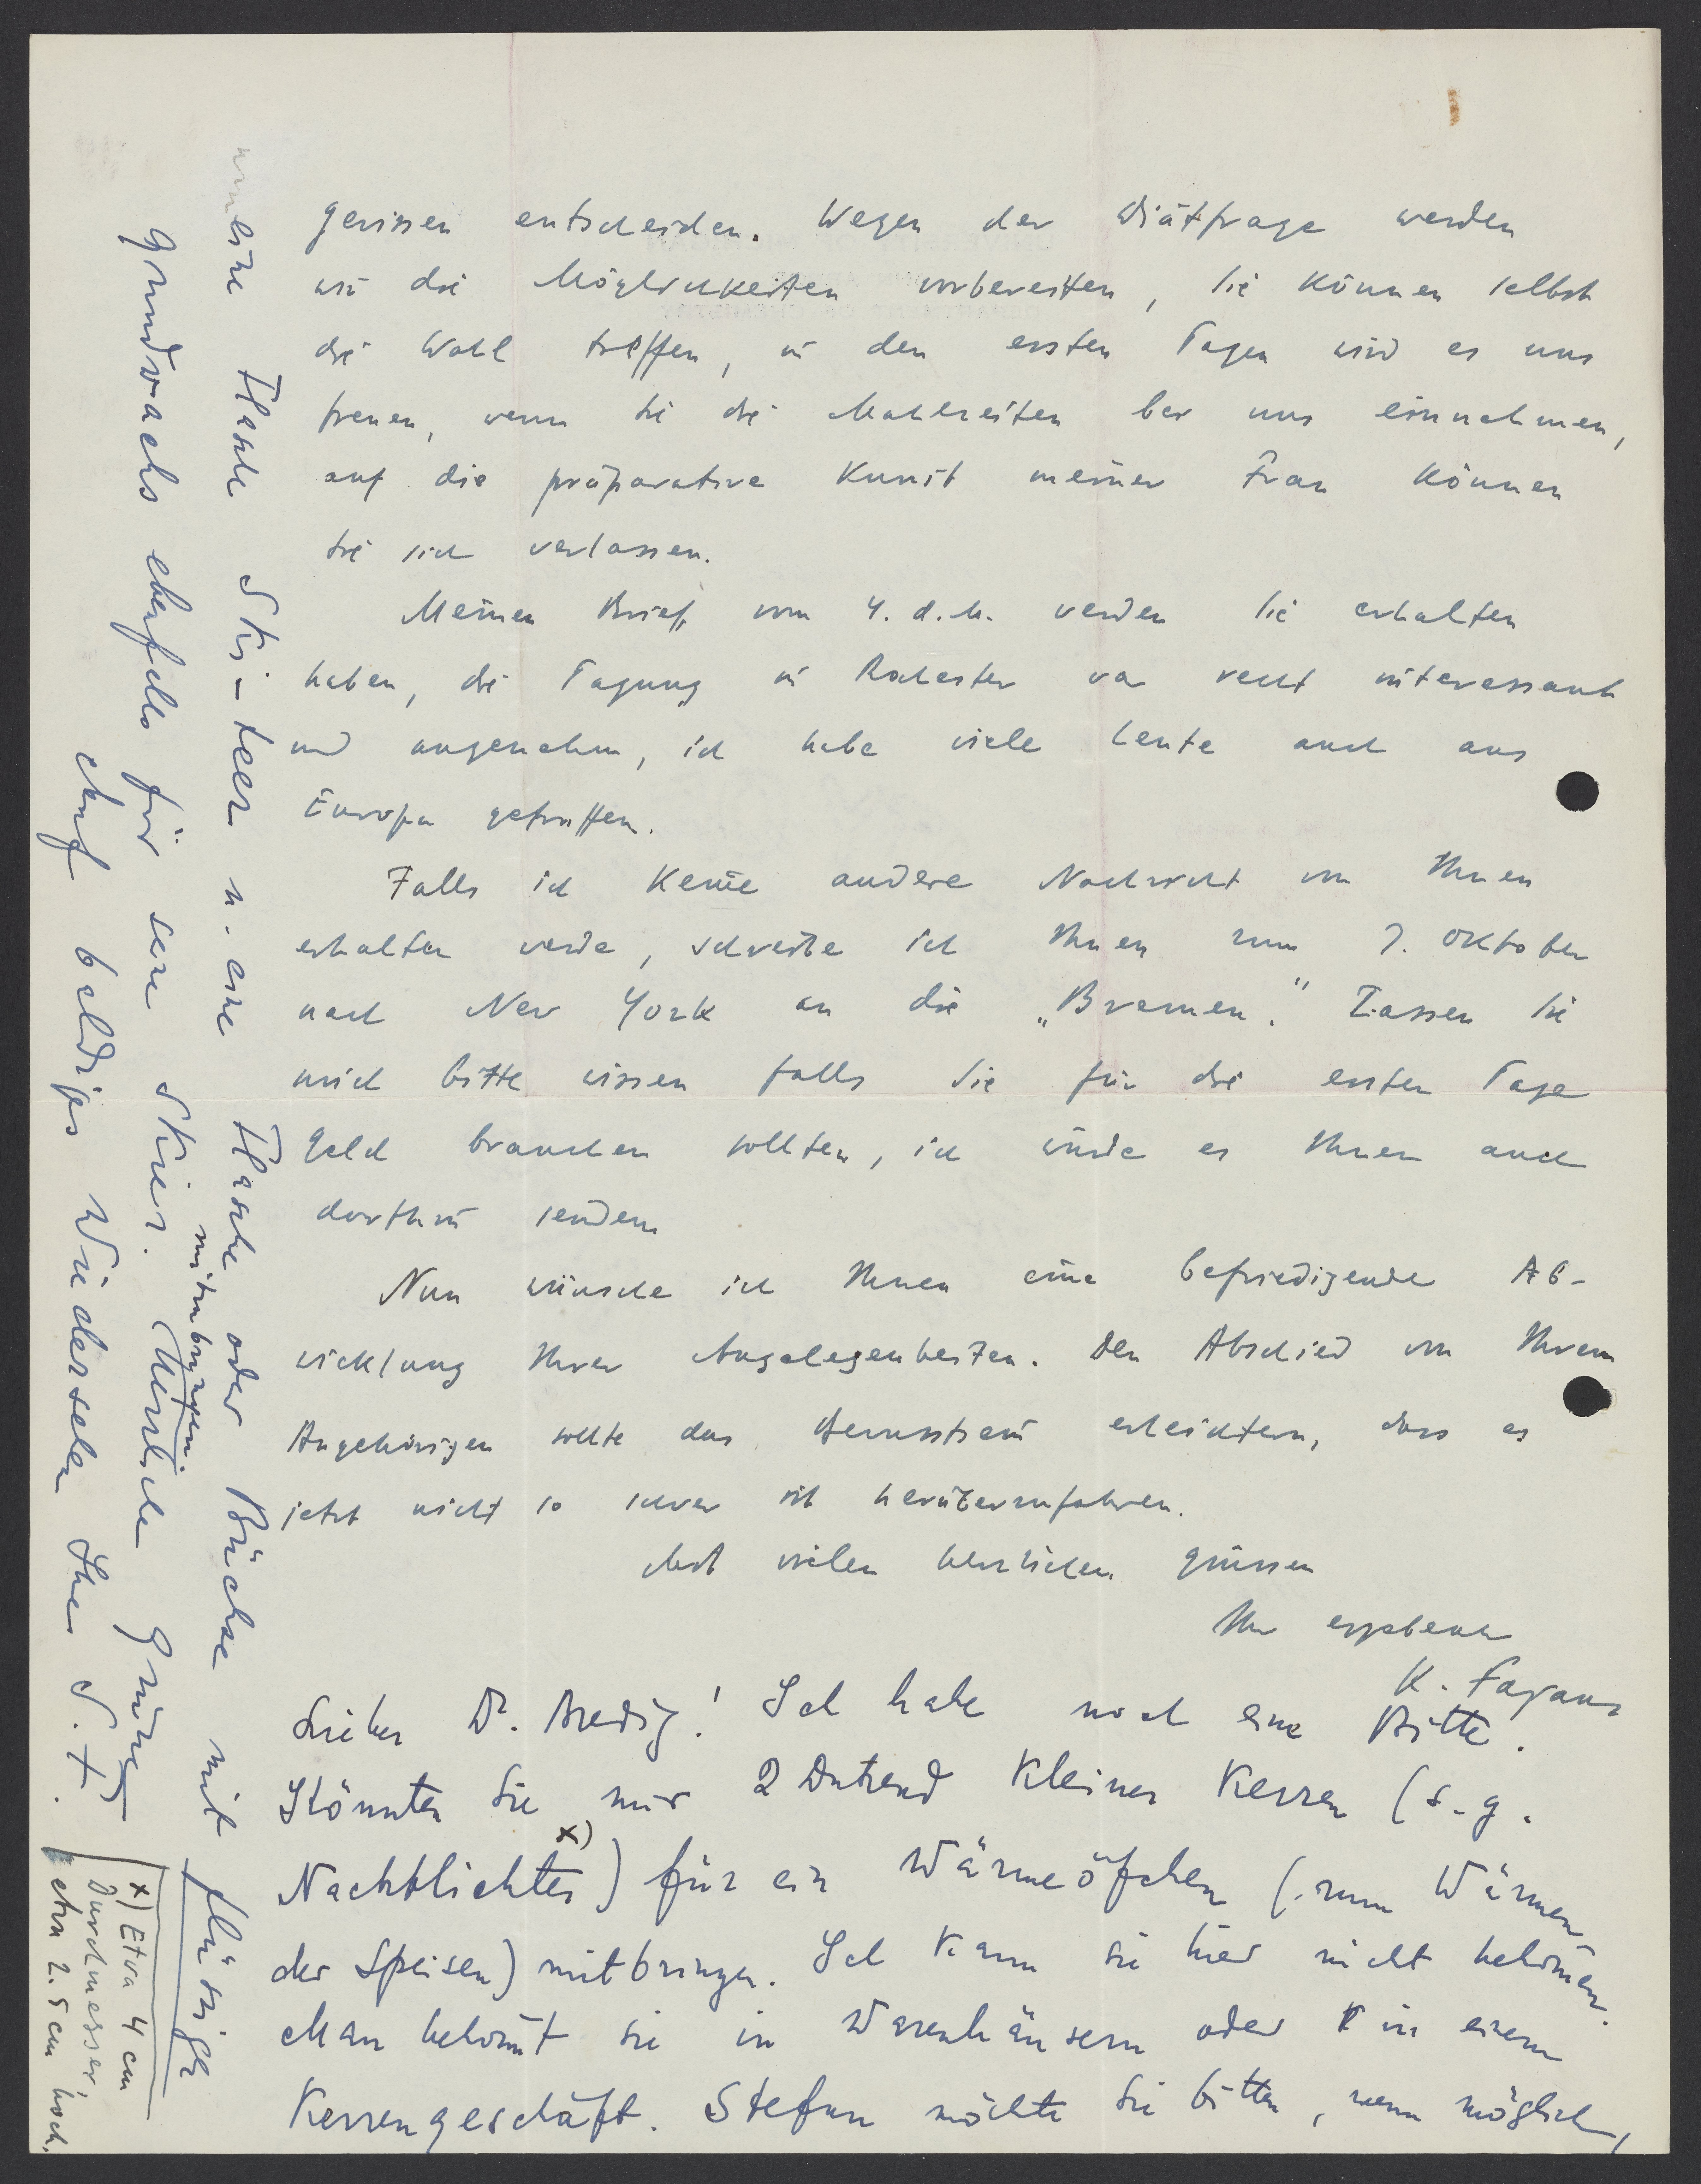 gewissen entscheiden. Wegen der Diätfrage werden
wir die Möglichkeiten vorbereiten, Sie können selbst
die Wahl treffen, in den ersten Tagen wird es uns
freuen, wenn Sie die Mahlzeiten bei uns einnehmen,
auf die präparative Kunst meiner Frau können
Sie sich verlassen.
Meinen Brief vom 4. d. M. werden Sie erhalten
haben, die Tagung in Rochester war recht interessant
und angenehm, ich habe viele Leute auch aus
Europa getroffen.
Falls ich keine andere Nachricht von Ihnen
erhalten werde, schreibe ich Ihnen zum 7. Oktober
nach New York an die „Bremen". Lassen Sie
mich bitte wissen falls Sie für die ersten Tage
Geld brauchen sollten, ich würde es Ihnen auch
dorthin senden
Nun wünsche ich Ihnen eine befriedigende Ab-
wicklung Ihrer Angelegenheiten. Den Abschied von Ihren
Angehörigen sollte das Bewusstsein erleichtern, dass es
jetzt nicht so schwer ist herüberzufahren.
Mit vielen herzlichen Grüssen
Ihr ergebener
K. Fajans
Lieber Dr. Bredig! Ich habe noch eine Bitte.
Könnten Sie mir 2 Dutzend kleiner Kerzen (s.g.
Nachtlichter x)) für ein Wärmeöfchen (zum Wärmen
der Speisen) mitbringen. Ich kann sie hier nicht bekommen.
Man bekommt sie in Warenhäusern oder in einem
Kerzengeschäft. Stefan möchte Sie bitten, wenn möglich,
eine Flasche Ski-teer u. eine Flasche oder Büchse mit flüssigem
Grundwachs ebenfalls für seine Skier mitzubringen. Herzliche Grüsse
Auf baldiges Wiedersehen Ihre S. F.
x) Etwa 4 cm
Durchmesser,
etwa 2.5 cm hoch.